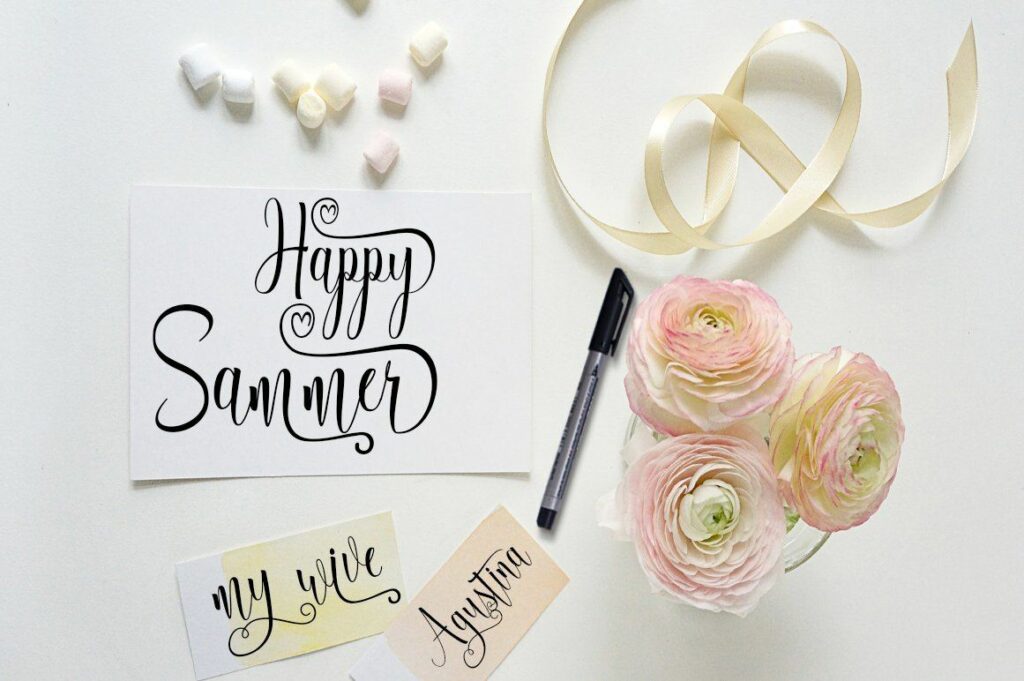 Happy
Sammer
my wive
Agustina